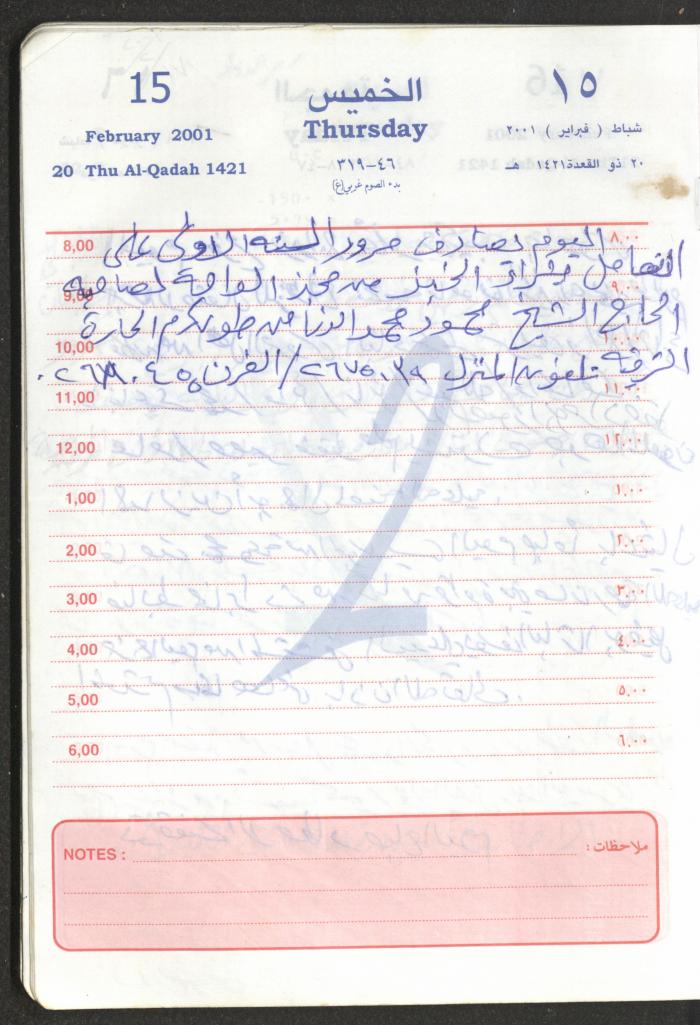 15 الخميس ١٥
February 2001 Thursday شباط ( فبراير ) ٢٠٠١
20 Thu Al-Qadah 1421 ٤٦-٣١٩ ٢٠ ذو القعدة ١٤٢١ هـ
بدء الصوم غربي (غ)
8,00 ٨,٠٠
اليوم يصادف مرور السنه الاولى على
التعامل بشراء الخبز من مخبز الواحة لصاحبه
9,00 ٩,٠٠
الحاج الشيخ محمود محمد من طولكرم الحارة
10,00 ١٠,٠٠
الشرقية تلفون المنزل ٢٦٧٥٠٣٩ / الفرن
11,00 ١١,٠٠
12,00 ١٢,٠٠
1,00 ١,٠٠
2,00 ٢,٠٠
3,00 ٣,٠٠
4,00 ٤,٠٠
5,00 ٥,٠٠
6,00 ٦,٠٠
NOTES : ملاحظات :